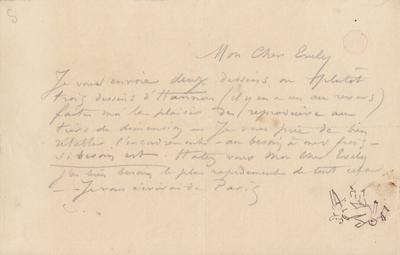 Mon Cher Evely
Je vous envoie deux dessins ou plutôt
trois dessins d'Hannon (il y en a un au revers)
faites moi le plaisir de reproduire au
tiers de dimension – Je vous prie de bien
rétablir l'encadrement – au besoin à mes frais –
si besoin est. Hatez vous Mon cher Evely
j'ai bien besoin le plus rapidement de tout cela
– Je vous écrirai de Paris